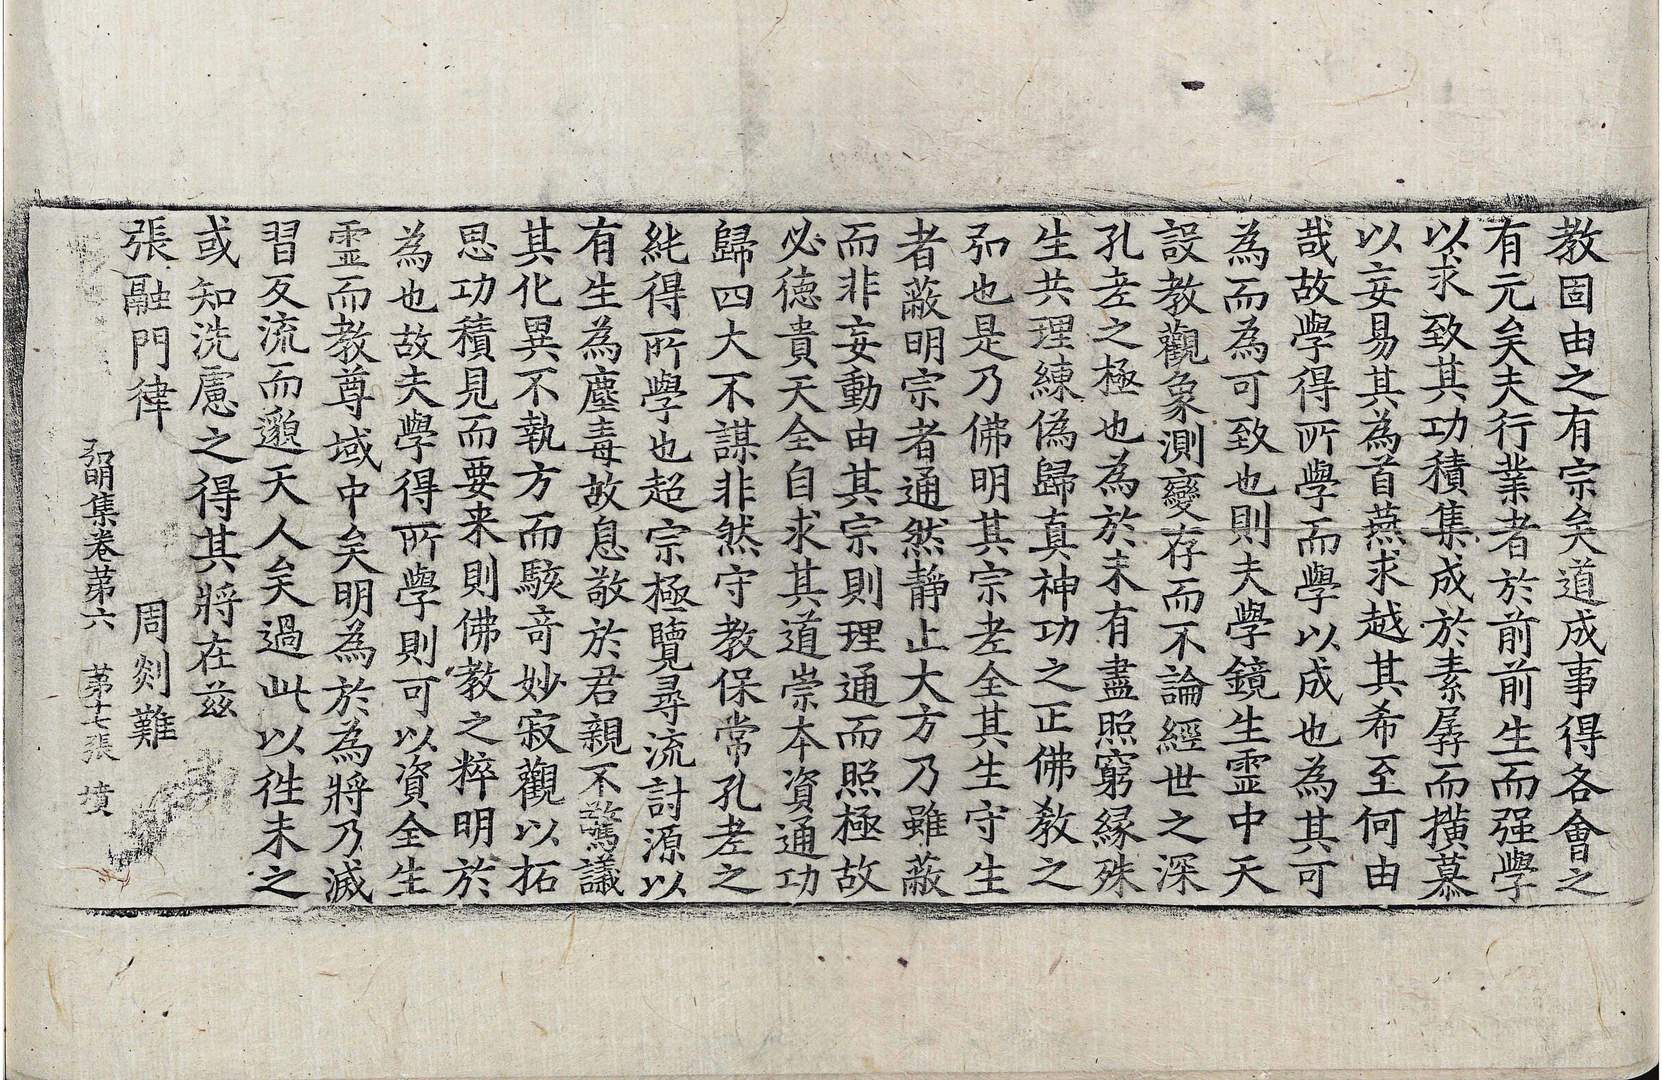 教固由之有宗矣道成事得各會之
有元矣夫行業者於前前生而强學
以求致其功積集成於素孱而撗慕
以妄易其為首燕求越其希至何由
哉故學得所學而學以成也為其可
為而為可致也則夫學鏡生霊中天
設教觀象測變存而不論經世之深
孔老之極也為於未有盡照窮縁殊
生共理練偽歸真神功之正佛教之
弘也是乃佛明其宗老全其生守生
者蔽明宗者通然静止大方乃雖蔽
而非妄動由其宗則理通而照極故
必德貴天全自求其道崇本資通功
歸四大不謀非然守教保常孔老之
純得所學也超宗極覽尋流討源以
有生為塵毒故息敬於君親不驚議
其化異不執方而駭奇妙寂觀以拓
思功積見而要来則佛教之粹明於
為也故夫學得所學則可以資全生
霊而教尊域中矣明為於為將乃滅
習反流而邈天人矣過此以徃未之
或知洗慮之得其將在兹
張融門律　周剡難
弘明集巻苐六　苐十七張　墳